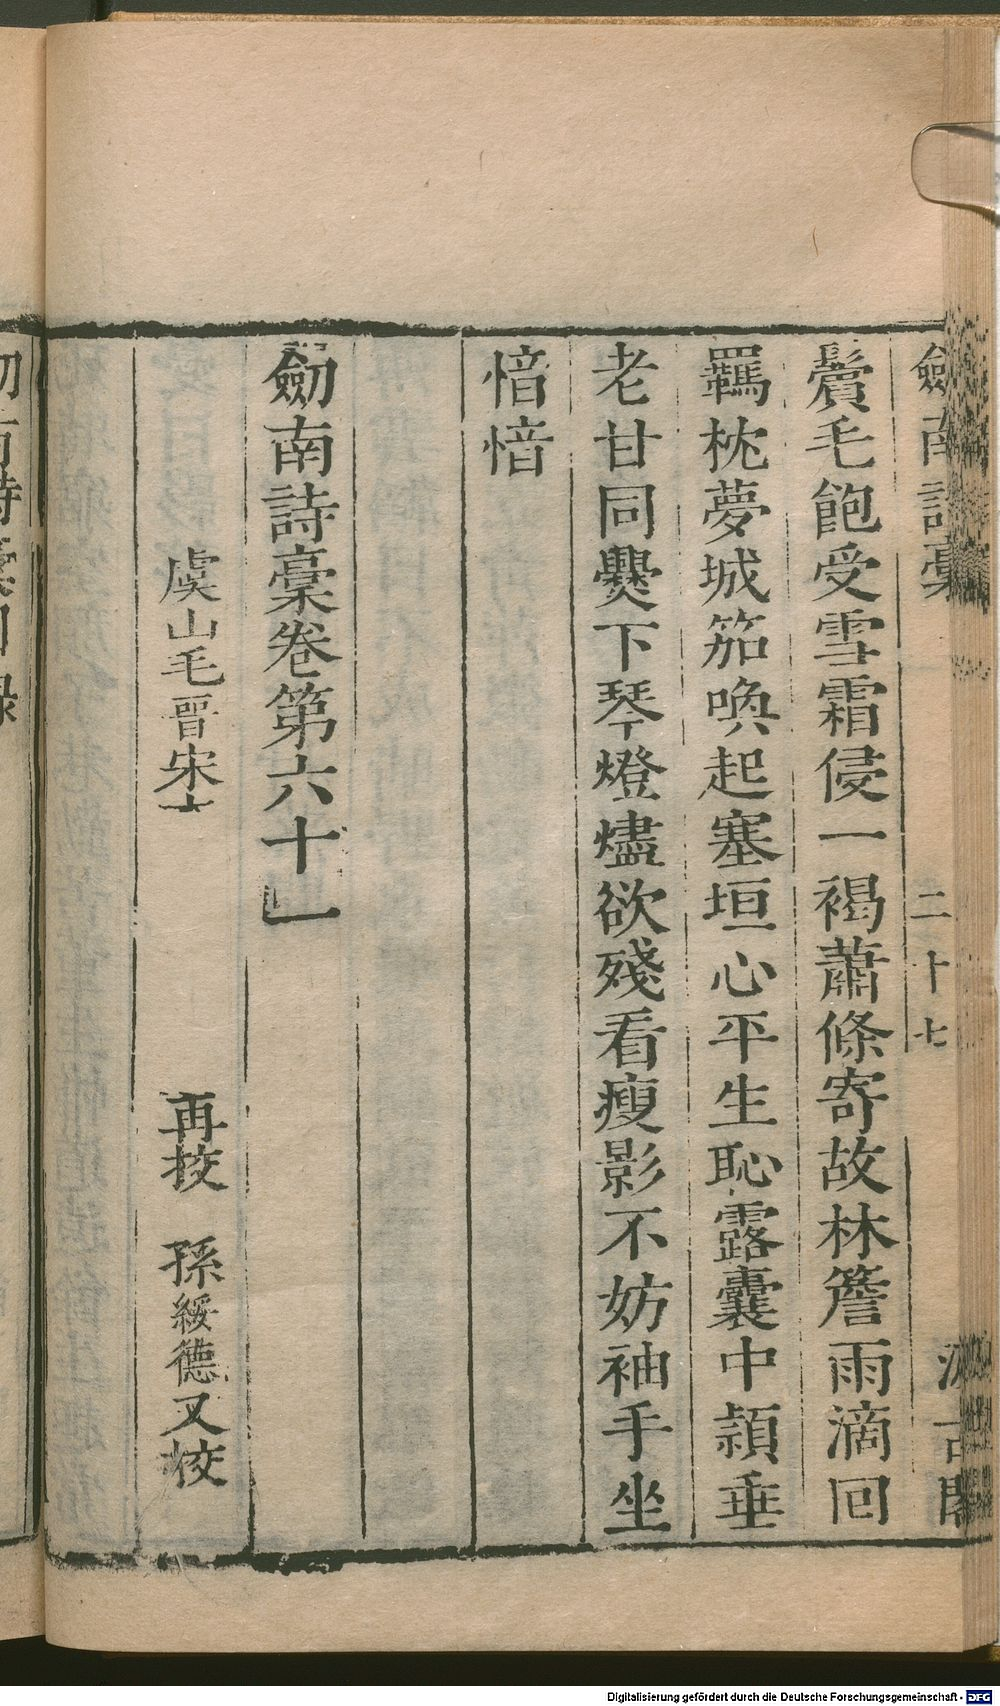 劔南詩稾
二十七
汲古閣
鬢毛飽受雪霜侵一褐蕭條寄故林簷雨滴回
羈枕夢城笳喚起塞垣心平生恥露囊中穎垂
老甘同㸑下琴燈燼欲殘看瘦影不妨袖手坐
愔愔
劔南詩稾卷第六十一
虞山毛晉宋
再挍 孫綏德又挍
Digitalisierung gefördert durch die Deutsche Forschungsgemeinschaft - DFG